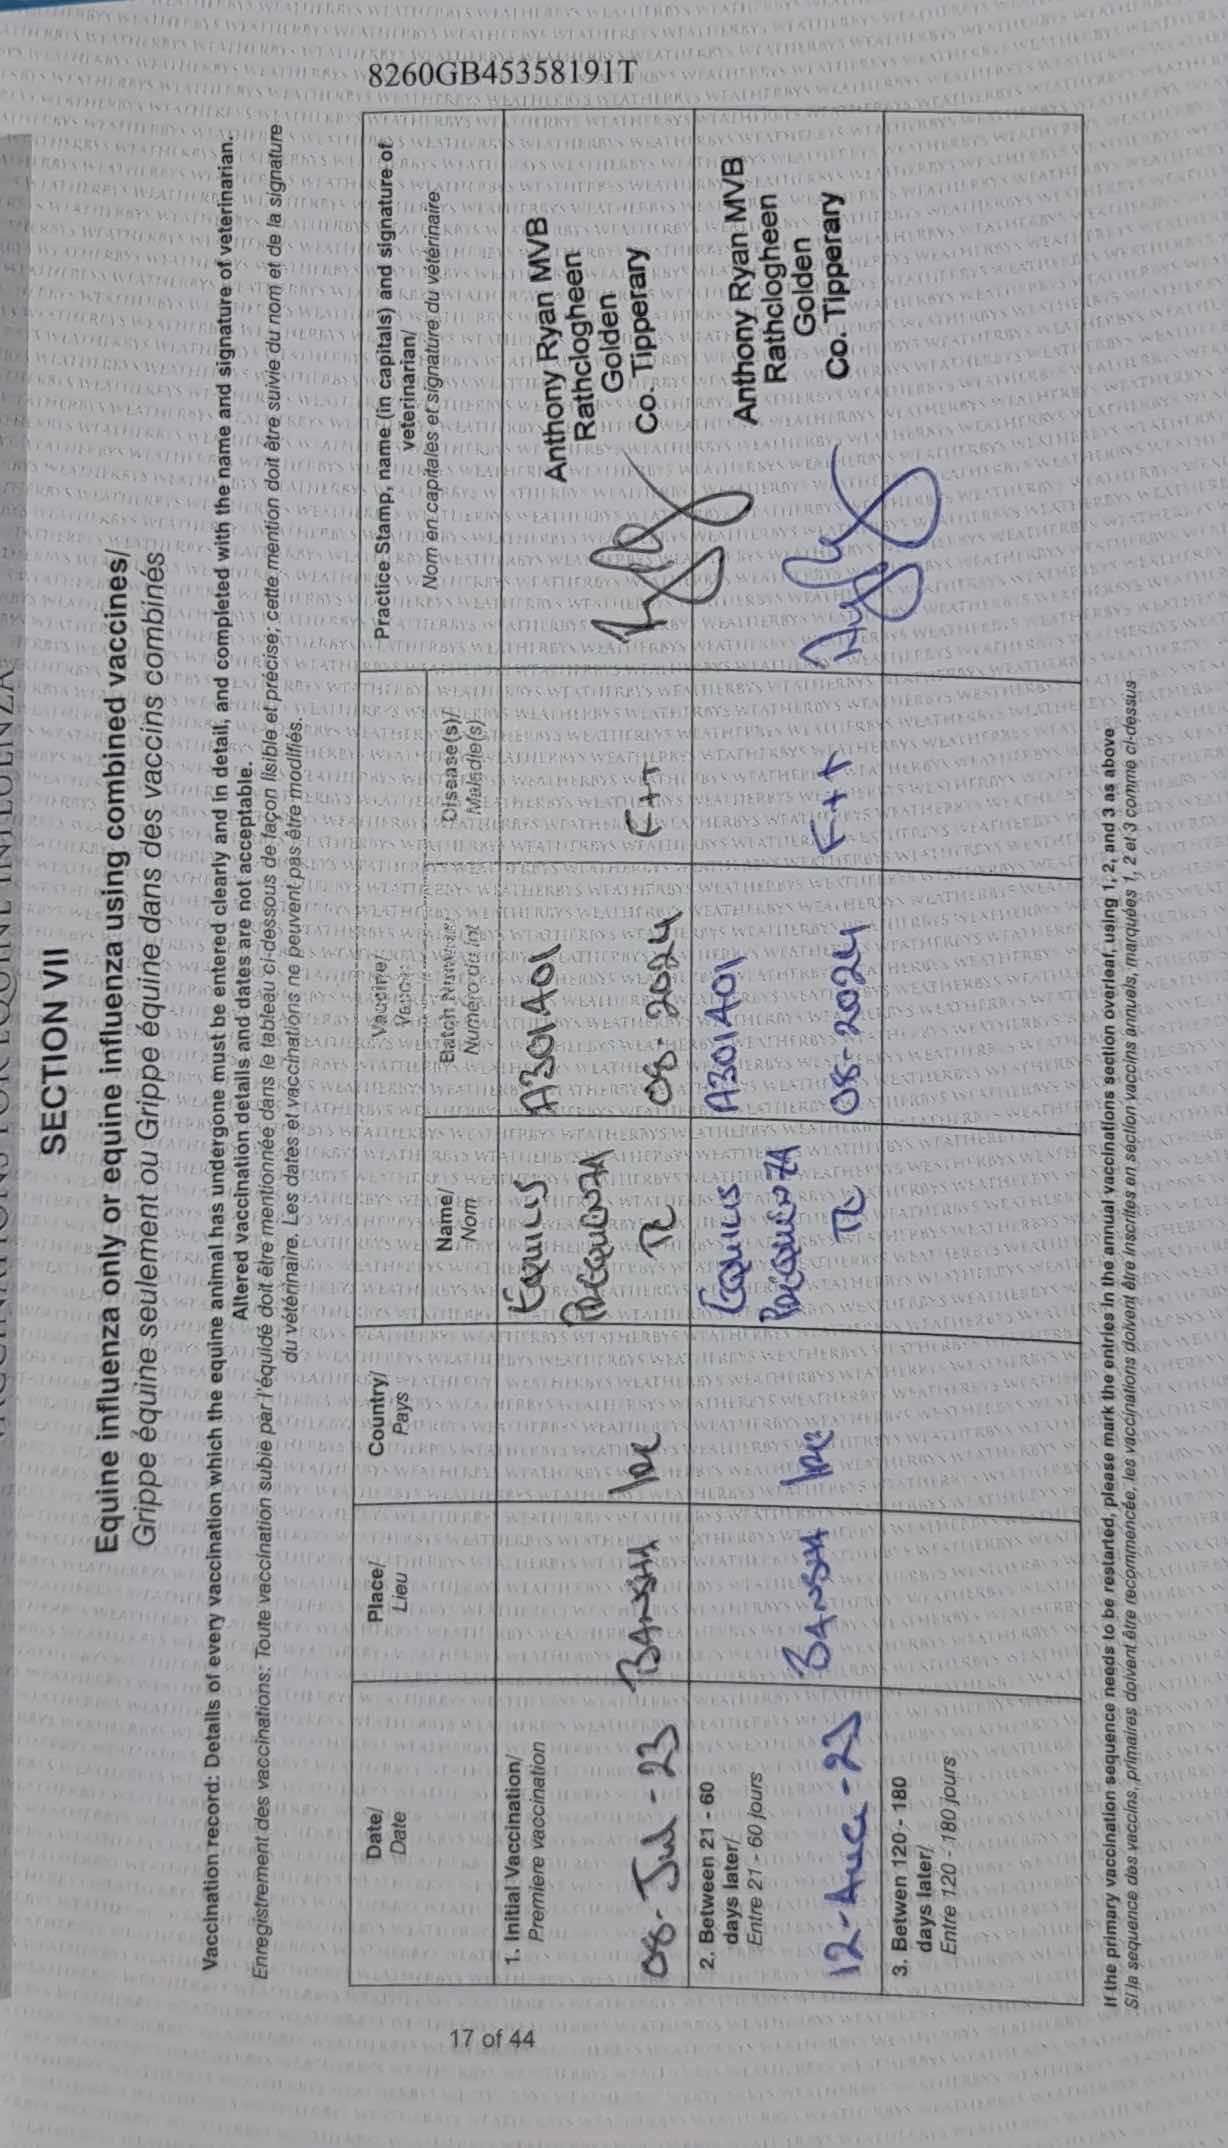 8260GB45358191T
SECTION VII
Equine influenza only or equine influenza using combined vaccines/
Grippe équine seulement ou Grippe équine dans des vaccins combinés
Vaccination record: Details of every vaccination which the equine animal has undergone must be entered clearly and in detail, and completed with the name and signature of veterinarian.
Altered vaccination details and dates are not acceptable.
Enregistrement des vaccinations: Toute vaccination subie par l'équidé doit être mentionnée dans le tableau ci-dessous de façon lisible et précise; cette mention doit être suivie du nom et de la signature
du vétérinaire. Les dates et vaccinations ne peuvent pas être modifiés.
Date/
Date
Place/
Lieu
Country/
Pays
Vaccine/
Vaccin
Name/
Nom
Batch Number/
Numéro du lot
Disease(s)/
Maladie(s)
Practice Stamp, name (in capitals) and signature of
veterinarian/
Nom en capitales et signature du vétérinaire
1. Initial Vaccination/
Premiere vaccination
08-Jul-23
BANSHA
IRE
EQUILIS
PREQUENZA
TE
A301A01
08-2024
F++
Anthony Ryan MVB
Rathclogheen
Golden
Co. Tipperary
2. Between 21 - 60
days later/
Entre 21 - 60 jours
12-AUG-23
BANSHA
IRE
EQUILIS
PREQUENZA
TE
A301A01
08-2024
F++
Anthony Ryan MVB
Rathclogheen
Golden
Co. Tipperary
3. Betwen 120 - 180
days later/
Entre 120 - 180 jours
If the primary vaccination sequence needs to be restarted, please mark the entries in the annual vaccinations section overleaf, using 1, 2, and 3 as above
Si la sequence des vaccins primaires doivent être recommencée, les vaccinations doivent être inscrites en section vaccins annuels, marquées 1, 2 et 3 comme ci-dessus
17 of 44